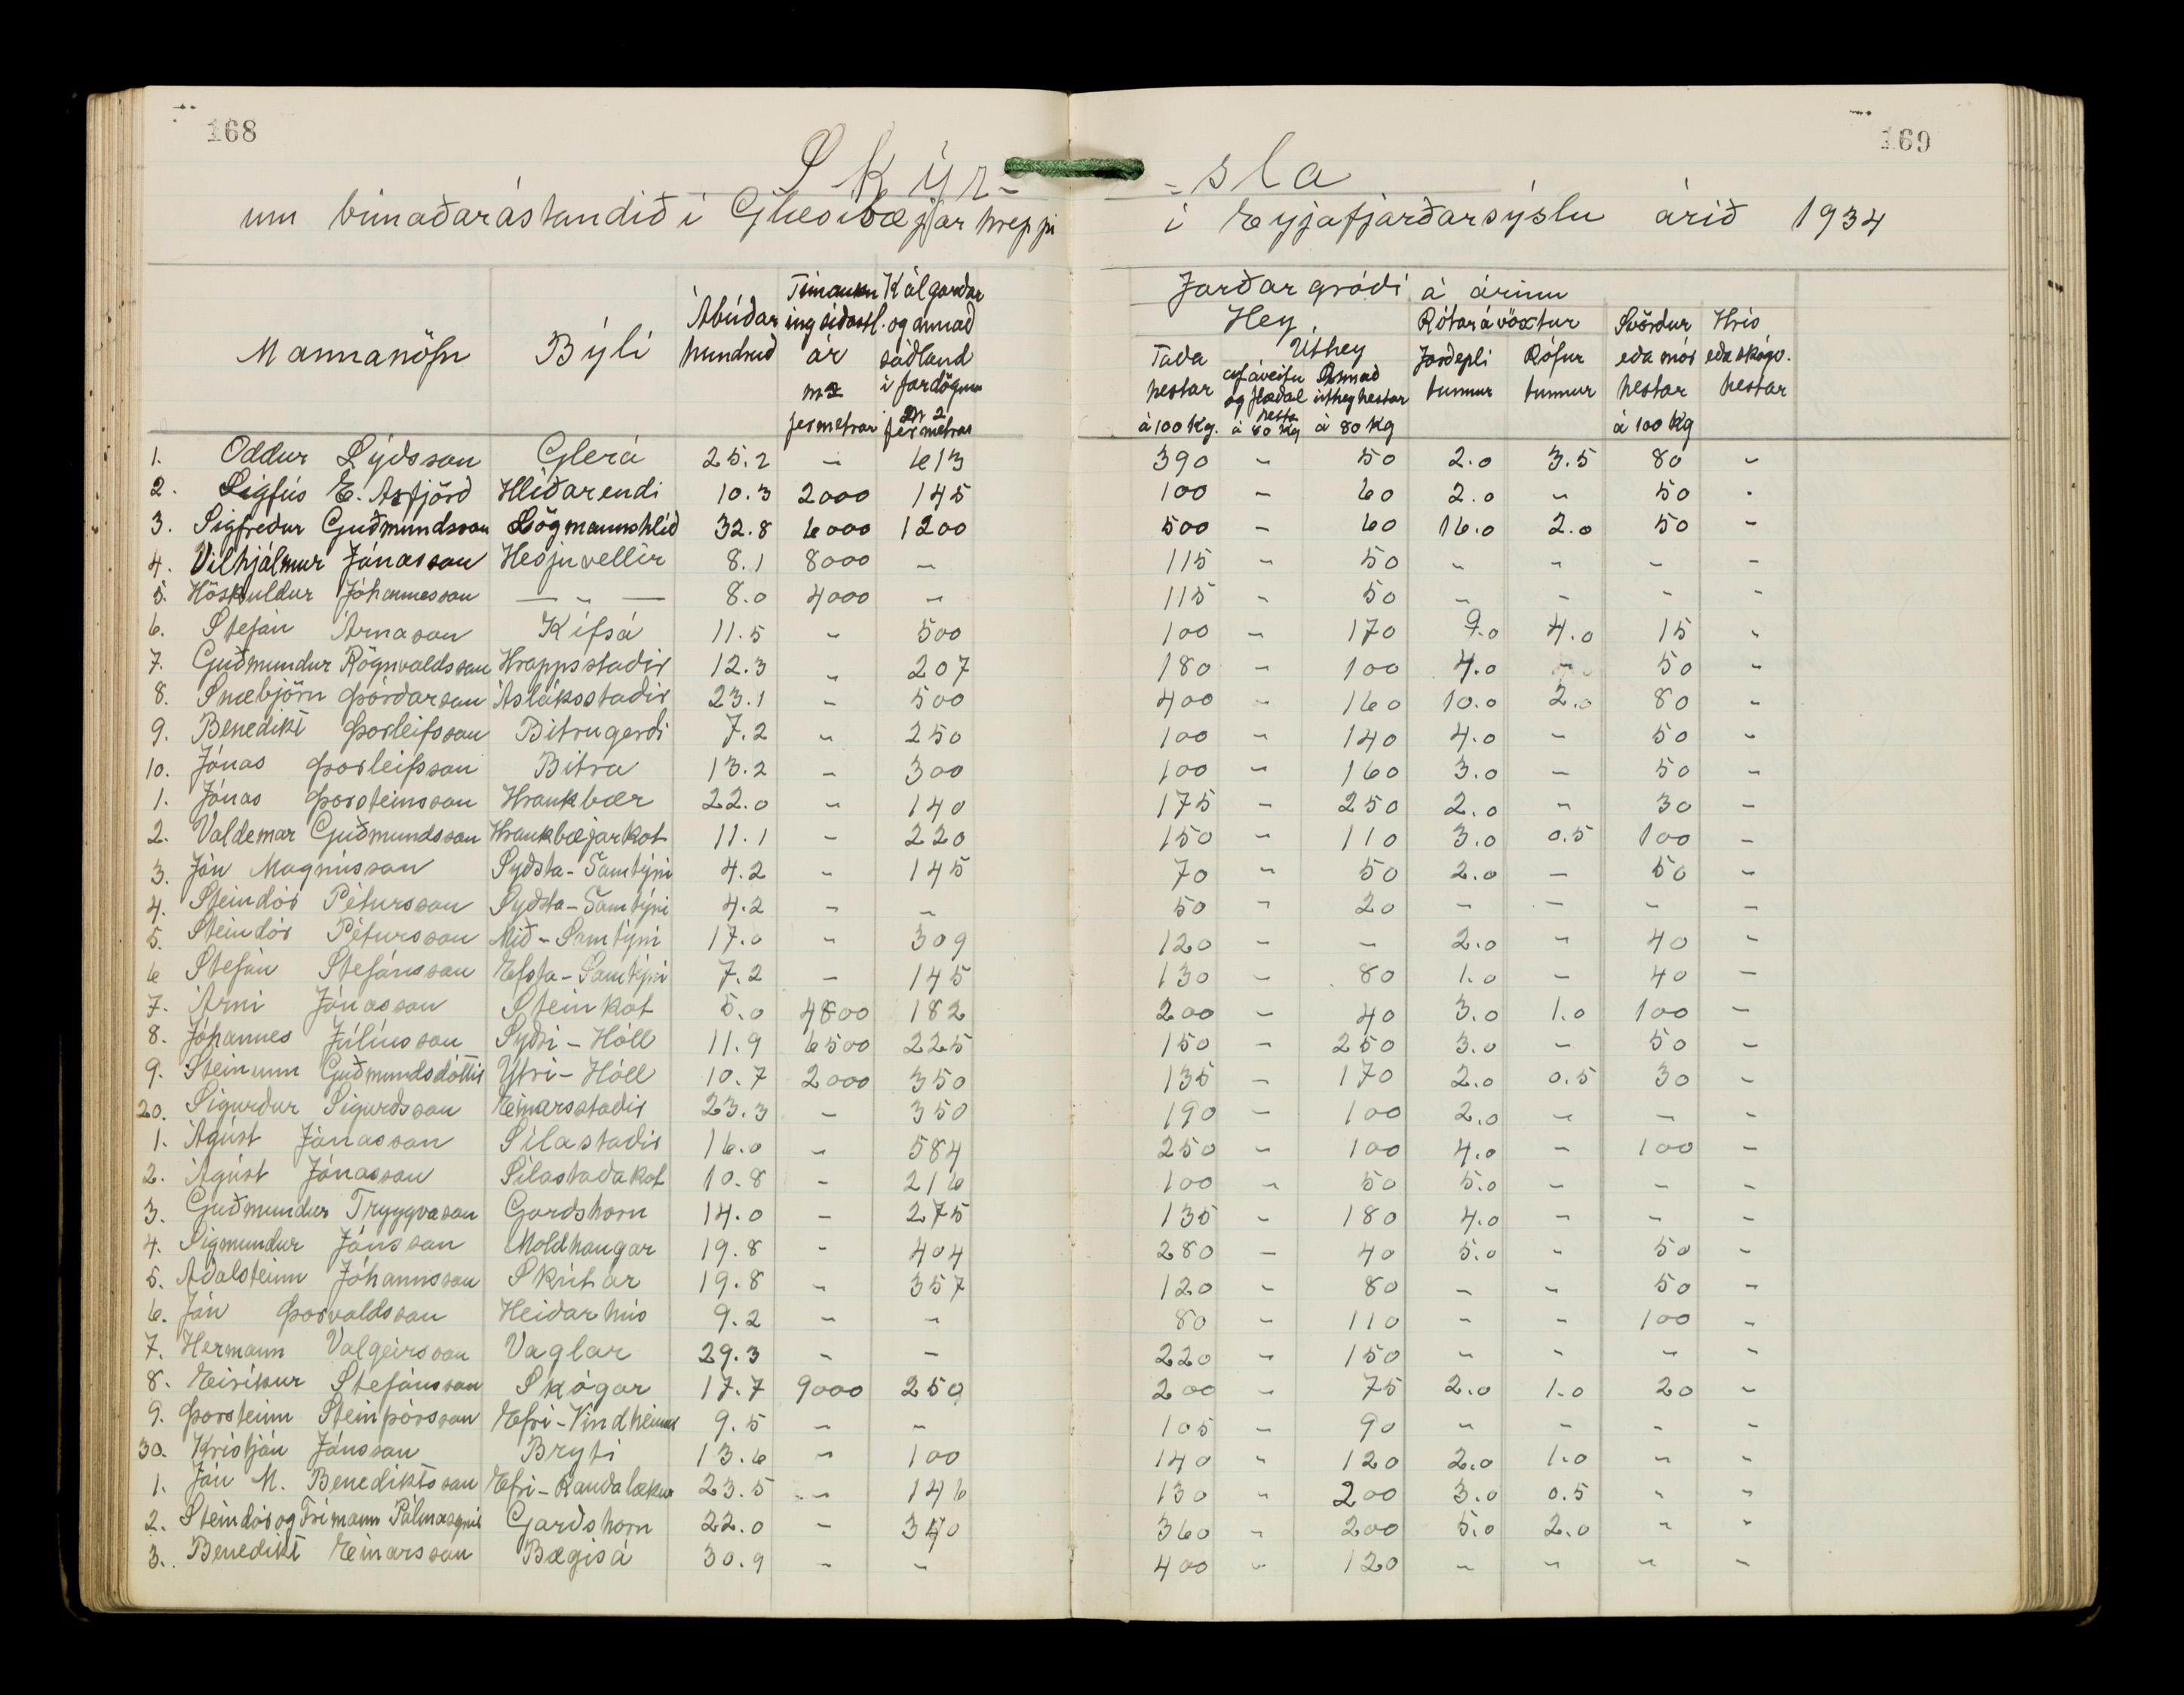 168
169
Skýr- =sla
um búnaðarástandið í Glæsibæjarhreppi í Eyjafjarðarsýslu árið 1934
Mannanöfn Býli Ábúðar hundruð Túnaukning síðastl. ár m2 fermetrar Kálgarðar og annað sáðland í fardögum m2 fermetrar
Jarðargróði á árinu
Hey. Rótarávöxtur Svörður eða mór hestar á 100 kg Hrís eða skógv. hestar
Taða hestar á 100 kg. Úthey af áveitu og flæðal hestar á 80 kg Annað úthey hestar á 80 kg Jarðepli tunnur Rófur tunnur
1. Oddur Lýðsson Glerá 25.2 - 613 390 - 50 2.0 3.5 80 -
2. Sigfús E. Axfjörð Hlíðarendi 10.3 2000 145 100 - 60 2.0 - 50 -
3. Sigfreður Guðmundsson Lögmannshlíð 32.8 6000 1200 500 - 60 16.0 2.0 50 -
4. Vilhjálmur Jónasson Hesjuvellir 8.1 8000 - 115 - 50 - - - -
5. Höskuldur Jóhannesson — „ — 8.0 4000 - 115 - 50 - - - -
6. Stefán Árnason Kífsá 11.5 - 500 100 - 170 9.0 4.0 15 -
7. Guðmundur Rögnvaldsson Hrappsstaðir 12.3 - 207 180 - 100 4.0 - 50 -
8. Snæbjörn Þórðarson Ásláksstaðir 23.1 - 500 400 - 160 10.0 2.0 80 -
9. Benedikt Þorleifsson Bitrugerði 7.2 - 250 100 - 140 4.0 - 50 -
10. Jónas Þorleifsson Bitra 13.2 - 300 100 - 160 3.0 - 50 -
1. Jónas Þorsteinsson Hraukbær 22.0 - 140 175 - 250 2.0 - 30 -
2. Valdemar Guðmundsson Hraukbæjarkot 11.1 - 220 150 - 110 3.0 0.5 100 -
3. Jón Magnússon Syðsta-Samtýni 4.2 - 145 70 - 50 2.0 - 50 -
4. Steindór Pétursson Syðsta-Samtýni 4.2 - - 50 - 20 - - - -
5. Steindór Pétursson Mið-Samtýni 17.0 - 309 120 - - 2.0 - 40 -
6 Stefán Stefánsson Efsta-Samtýni 7.2 - 145 130 - 80 1.0 - 40 -
7. Árni Jónasson Steinkot 5.0 4800 182 200 - 40 3.0 1.0 100 -
8. Jóhannes Júlíusson Syðri-Hóll 11.9 6500 225 150 - 250 3.0 - 50 -
9. Steinunn Guðmundsdóttir Ytri-Hóll 10.7 2000 350 135 - 170 2.0 0.5 30 -
20. Sigurður Sigurðsson Einarsstaðir 23.3 - 350 190 - 100 2.0 - - -
1. Ágúst Jónasson Sílastaðir 16.0 - 584 250 - 100 4.0 - 100 -
2. Ágúst Jónasson Sílastaðakot 10.8 - 216 100 - 50 5.0 - - -
3. Guðmundur Tryggvason Garðshorn 14.0 - 275 135 - 180 4.0 - - -
4. Sigmundur Jónsson Moldhaugar 19.8 - 404 280 - 40 5.0 - 50 -
5. Aðalsteinn Jóhannsson Skútar 19.8 - 357 120 - 80 - - 50 -
6. Jón Þorvaldsson Heiðarhús 9.2 - - 80 - 110 - - 100 -
7. Hermann Valgeirsson Vaglar 29.3 - - 220 - 150 - - - -
8. Eiríkur Stefánsson Skógar 17.7 9000 250 200 - 75 2.0 1.0 20 -
9. Þorsteinn Steinþórsson Efri-Vindheimar 9.5 - - 105 - 90 - - - -
30. Kristján Jónsson Bryti 13.6 - 100 140 - 120 2.0 1.0 - -
1. Jón M. Benediktsson Efri-Rauðalækur 23.5 - 146 130 - 200 3.0 0.5 - -
2. Steindór og Frímann Pálmasynir Garðshorn 22.0 - 340 360 - 200 5.0 2.0 - -
3. Benedikt Einarsson Bægisá 30.9 - - 400 - 120 - - - -